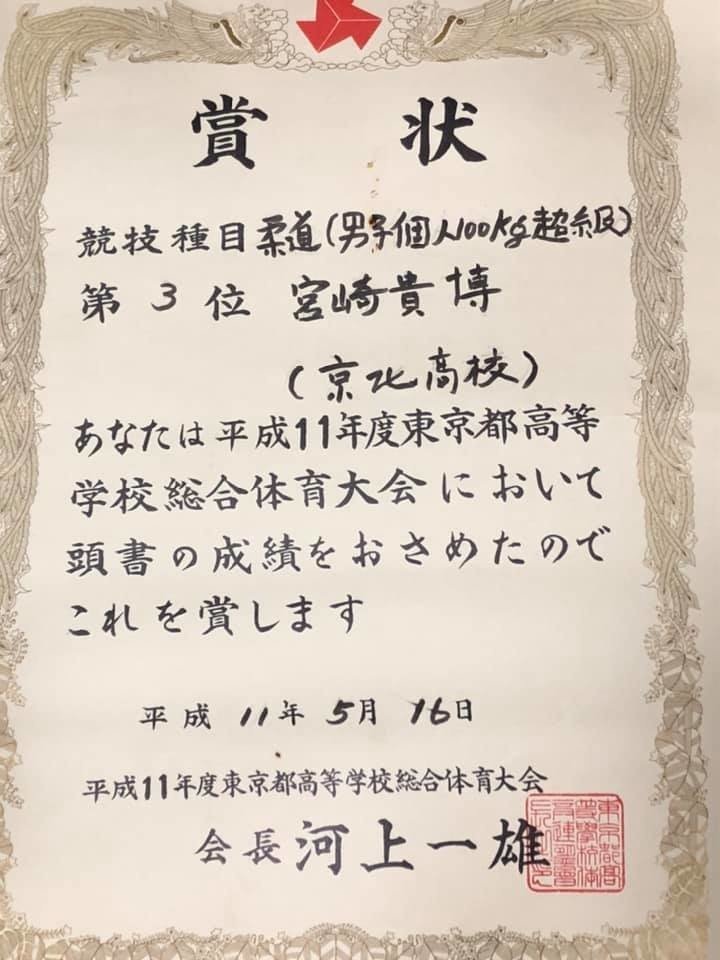 賞状
競技種目柔道(男子個人100kg超級)
第3位 宮崎貴博
(京北高校)
あなたは平成11年度東京都高等
学校総合体育大会において
頭書の成績をおさめたので
これを賞します
平成11年5月16日
平成11年度東京都高等学校総合体育大会
会長 河上一雄